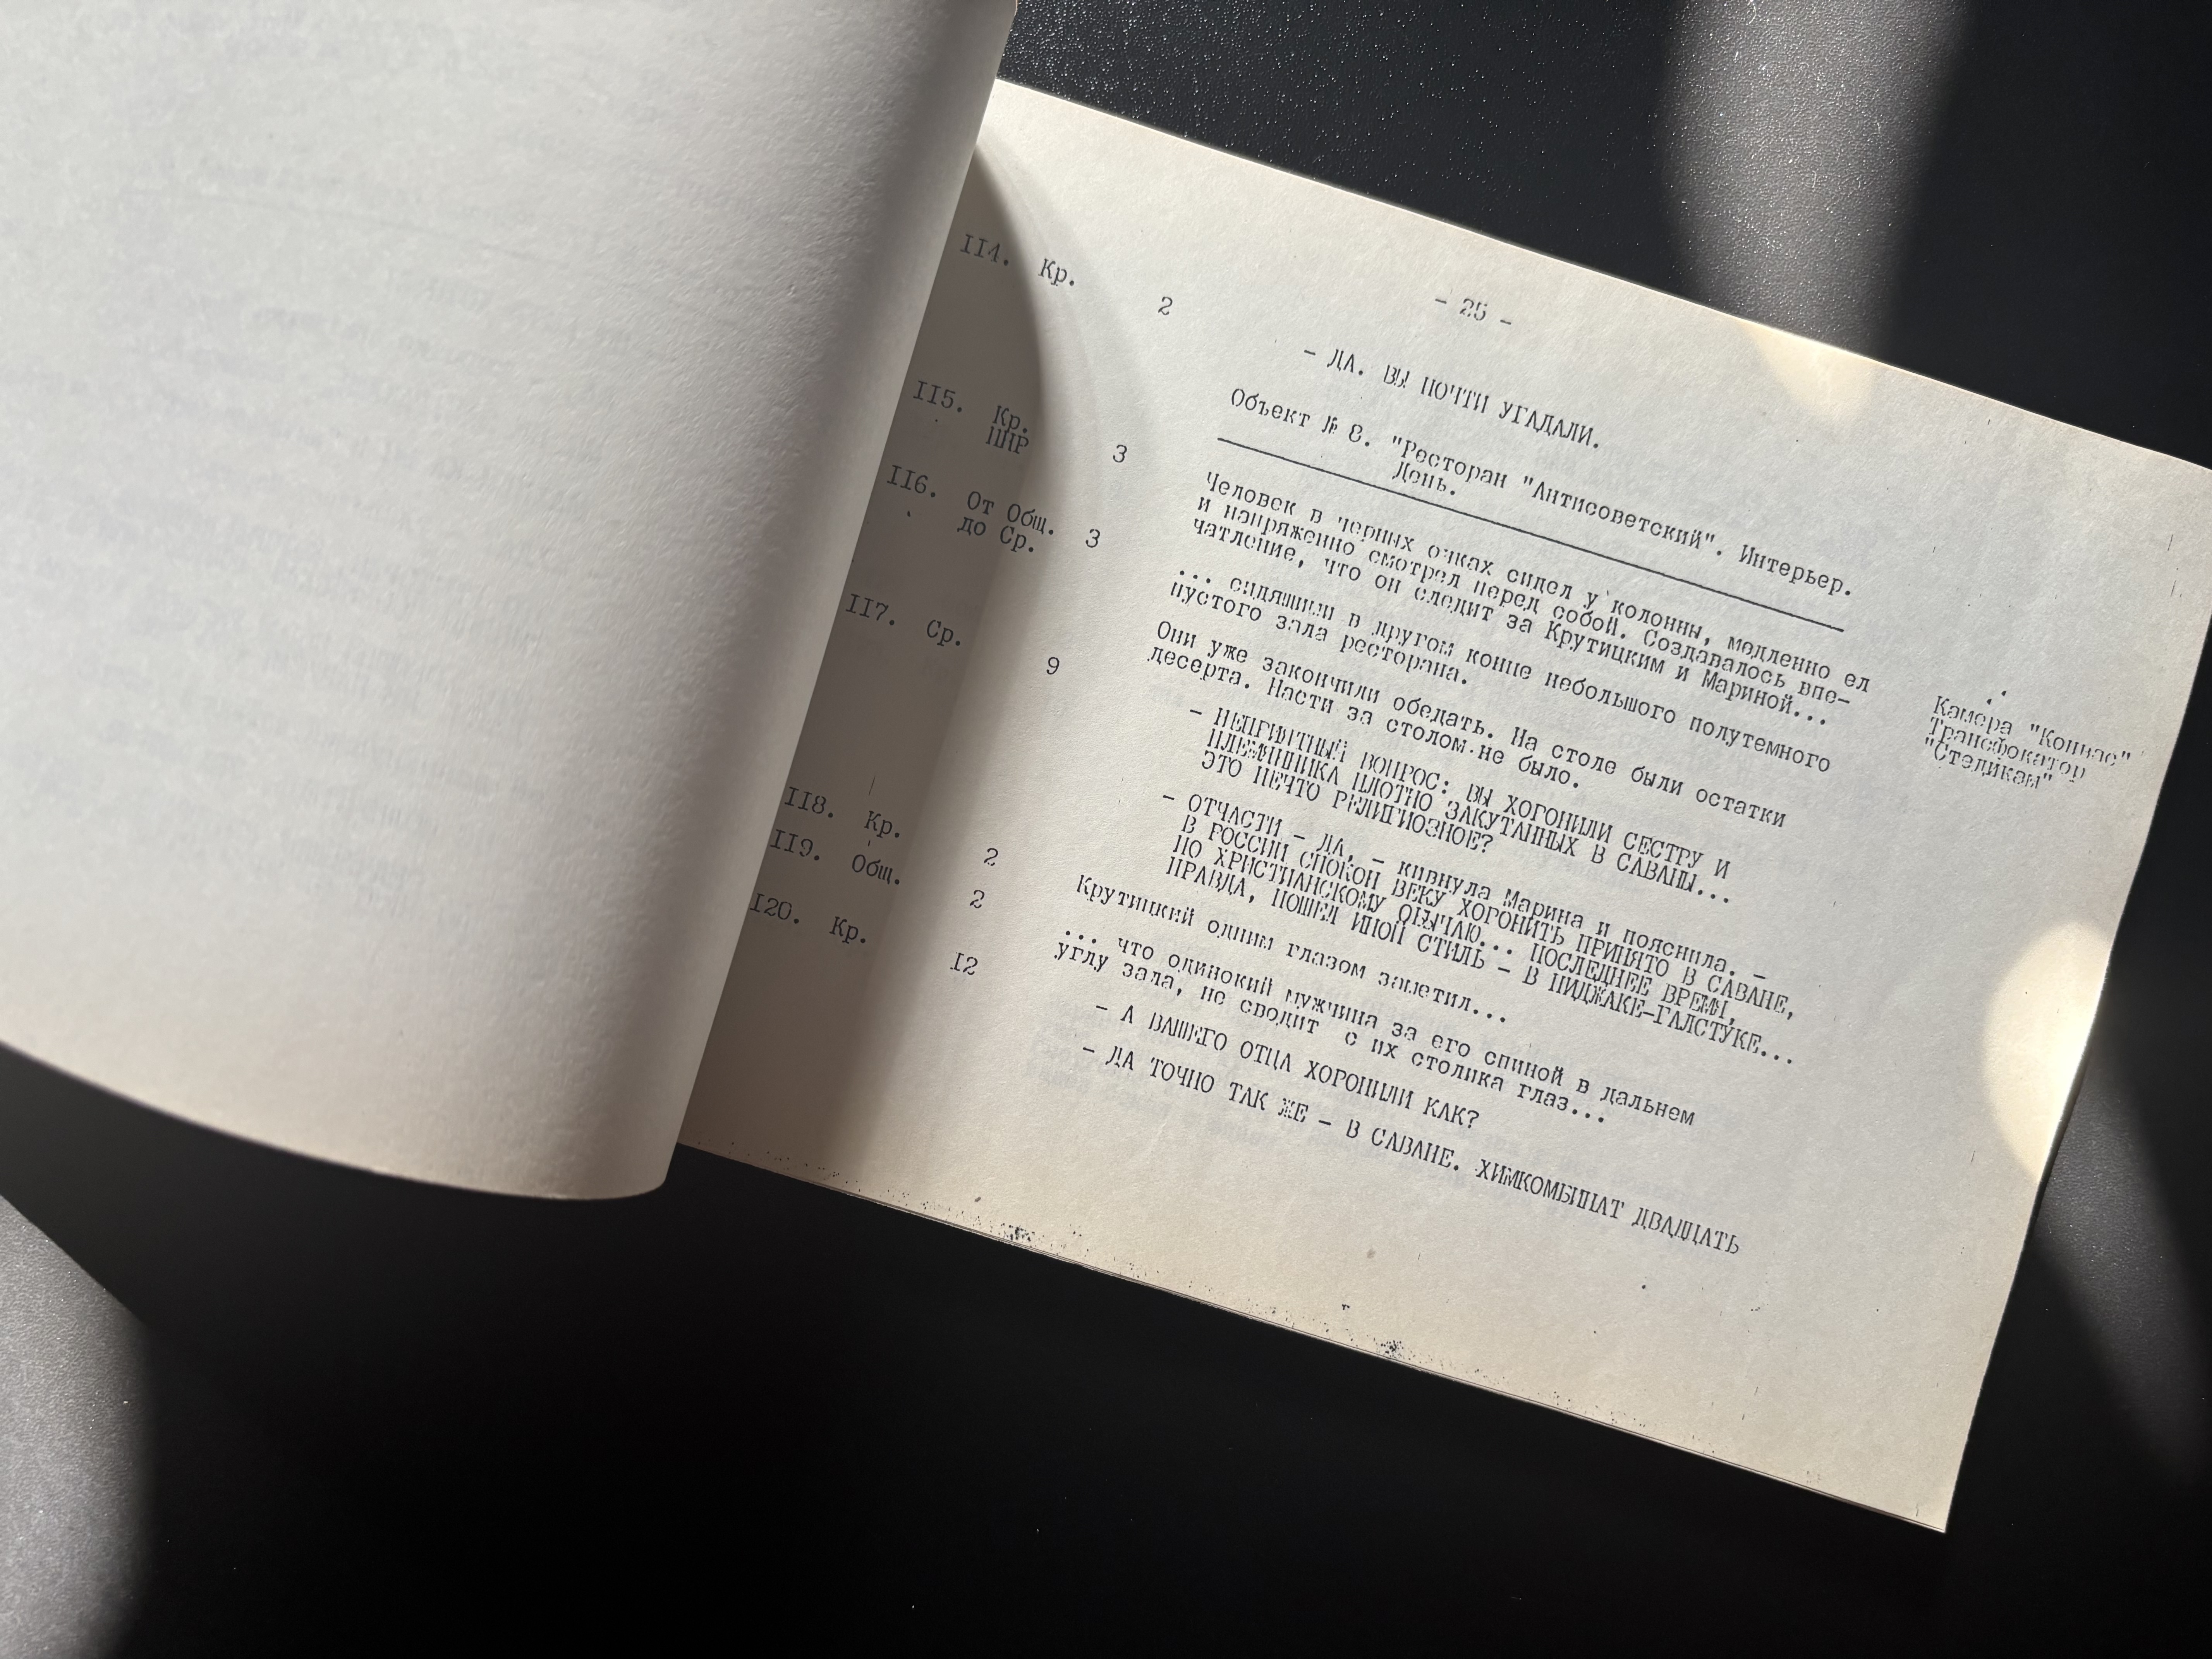 - 25 -
114. Кр. 2 - ДА. ВЫ ПОЧТИ УГАДАЛИ.
Объект № 8. "Ресторан "Антисоветский". Интерьер.
День.
115. Кр. 3 Человек в черных очках сидел у колонны, медленно ел
ППР и напряженно смотрел перед собой. Создавалось впе-
чатление, что он следит за Крутицким и Мариной...
116. От Общ. 3 ... сидящими в другом конце небольшого полутемного
до Ср. пустого зала ресторана.
Камера "Конвас"
Трансфокатор
"Стедикам"
117. Ср. 9 Они уже закончили обедать. На столе были остатки
десерта. Насти за столом не было.
- НЕПРИЯТНЫЙ ВОПРОС: ВЫ ХОРОНИЛИ СЕСТРУ И
ПЛЕМЯННИКА ПЛОТНО ЗАКУТАННЫХ В САВАНЫ...
ЭТО НЕЧТО РЕЛИГИОЗНОЕ?
- ОТЧАСТИ - ДА, - кивнула Марина и пояснила. -
В РОССИИ СПОКОН ВЕКУ ХОРОНИТЬ ПРИНЯТО В САВАНЕ,
ПО ХРИСТИАНСКОМУ ОБЫЧАЮ... ПОСЛЕДНЕЕ ВРЕМЯ,
ПРАВДА, ПОШЕЛ ИНОЙ СТИЛЬ - В ПИДЖАКЕ-ГАЛСТУКЕ...
118. Кр. 2 Крутицкий одним глазом заметил...
119. Общ. 2 ... что одинокий мужчина за его спиной в дальнем
углу зала, не сводит с их столика глаз...
120. Кр. 12 - А ВАШЕГО ОТЦА ХОРОНИЛИ КАК?
- ДА ТОЧНО ТАК ЖЕ - В САВАНЕ. ХИМКОМБИНАТ ДВАДЦАТЬ